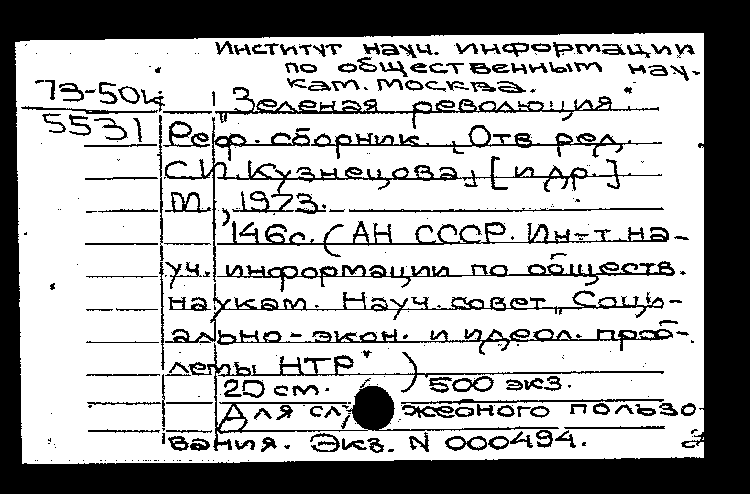 Институт науч. информации
по общественным нау-
кам. Москва.
73-50к
5531
"Зеленая революция".
Реф. сборник. [Отв. ред.
С.И. Кузнецова] [и др.]
М., 1973.
146с. (АН СССР. Ин-т на-
уч. информации по обществ.
наукам. Науч. совет "Соци-
ально-экон. и идеол. проб-
лемы НТР")
20 см. 500 экз.
Для служебного пользо-
вания. Экз. N 000494.